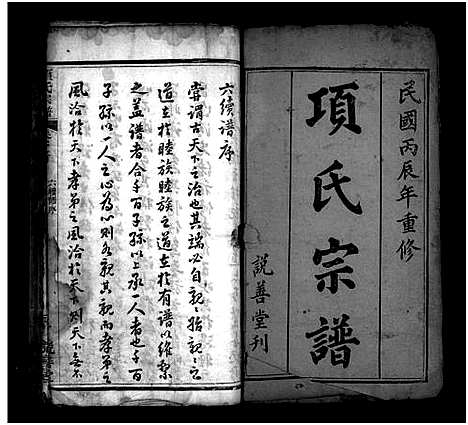 民國丙辰年重修
項氏宗譜
説善堂刊
六續譜序
嘗謂古天下之治也其端必自親親始親親之
道在於睦族睦族之道在於有譜以維繫
之蓋譜者合千百子孫以上承一人者也千百
子孫以一人之心為心則各親其親而孝弟之
風洽於天下孝弟之風洽於天下則天下無不
六續譜序